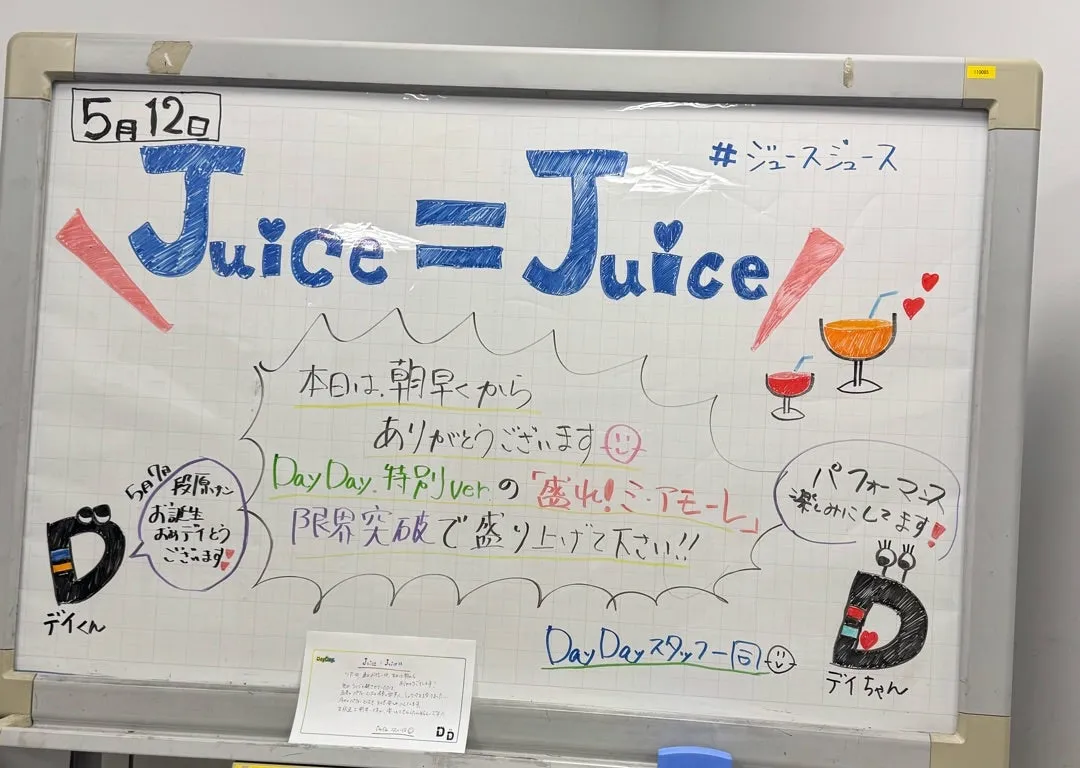 5月12日
#ジュースジュース
Juice=Juice
本日は、朝早くから
ありがとうございます
DayDay.特別verの「盛れ!ミ・アモーレ」
限界突破で盛り上げて下さい!!
5月7日
段原サン
お誕生
おめデイとう
ございます
デイくん
パフォーマンス
楽しみにしてます!
デイちゃん
DayDayスタッフ一同
DayDay.
Juice=Juice
110085